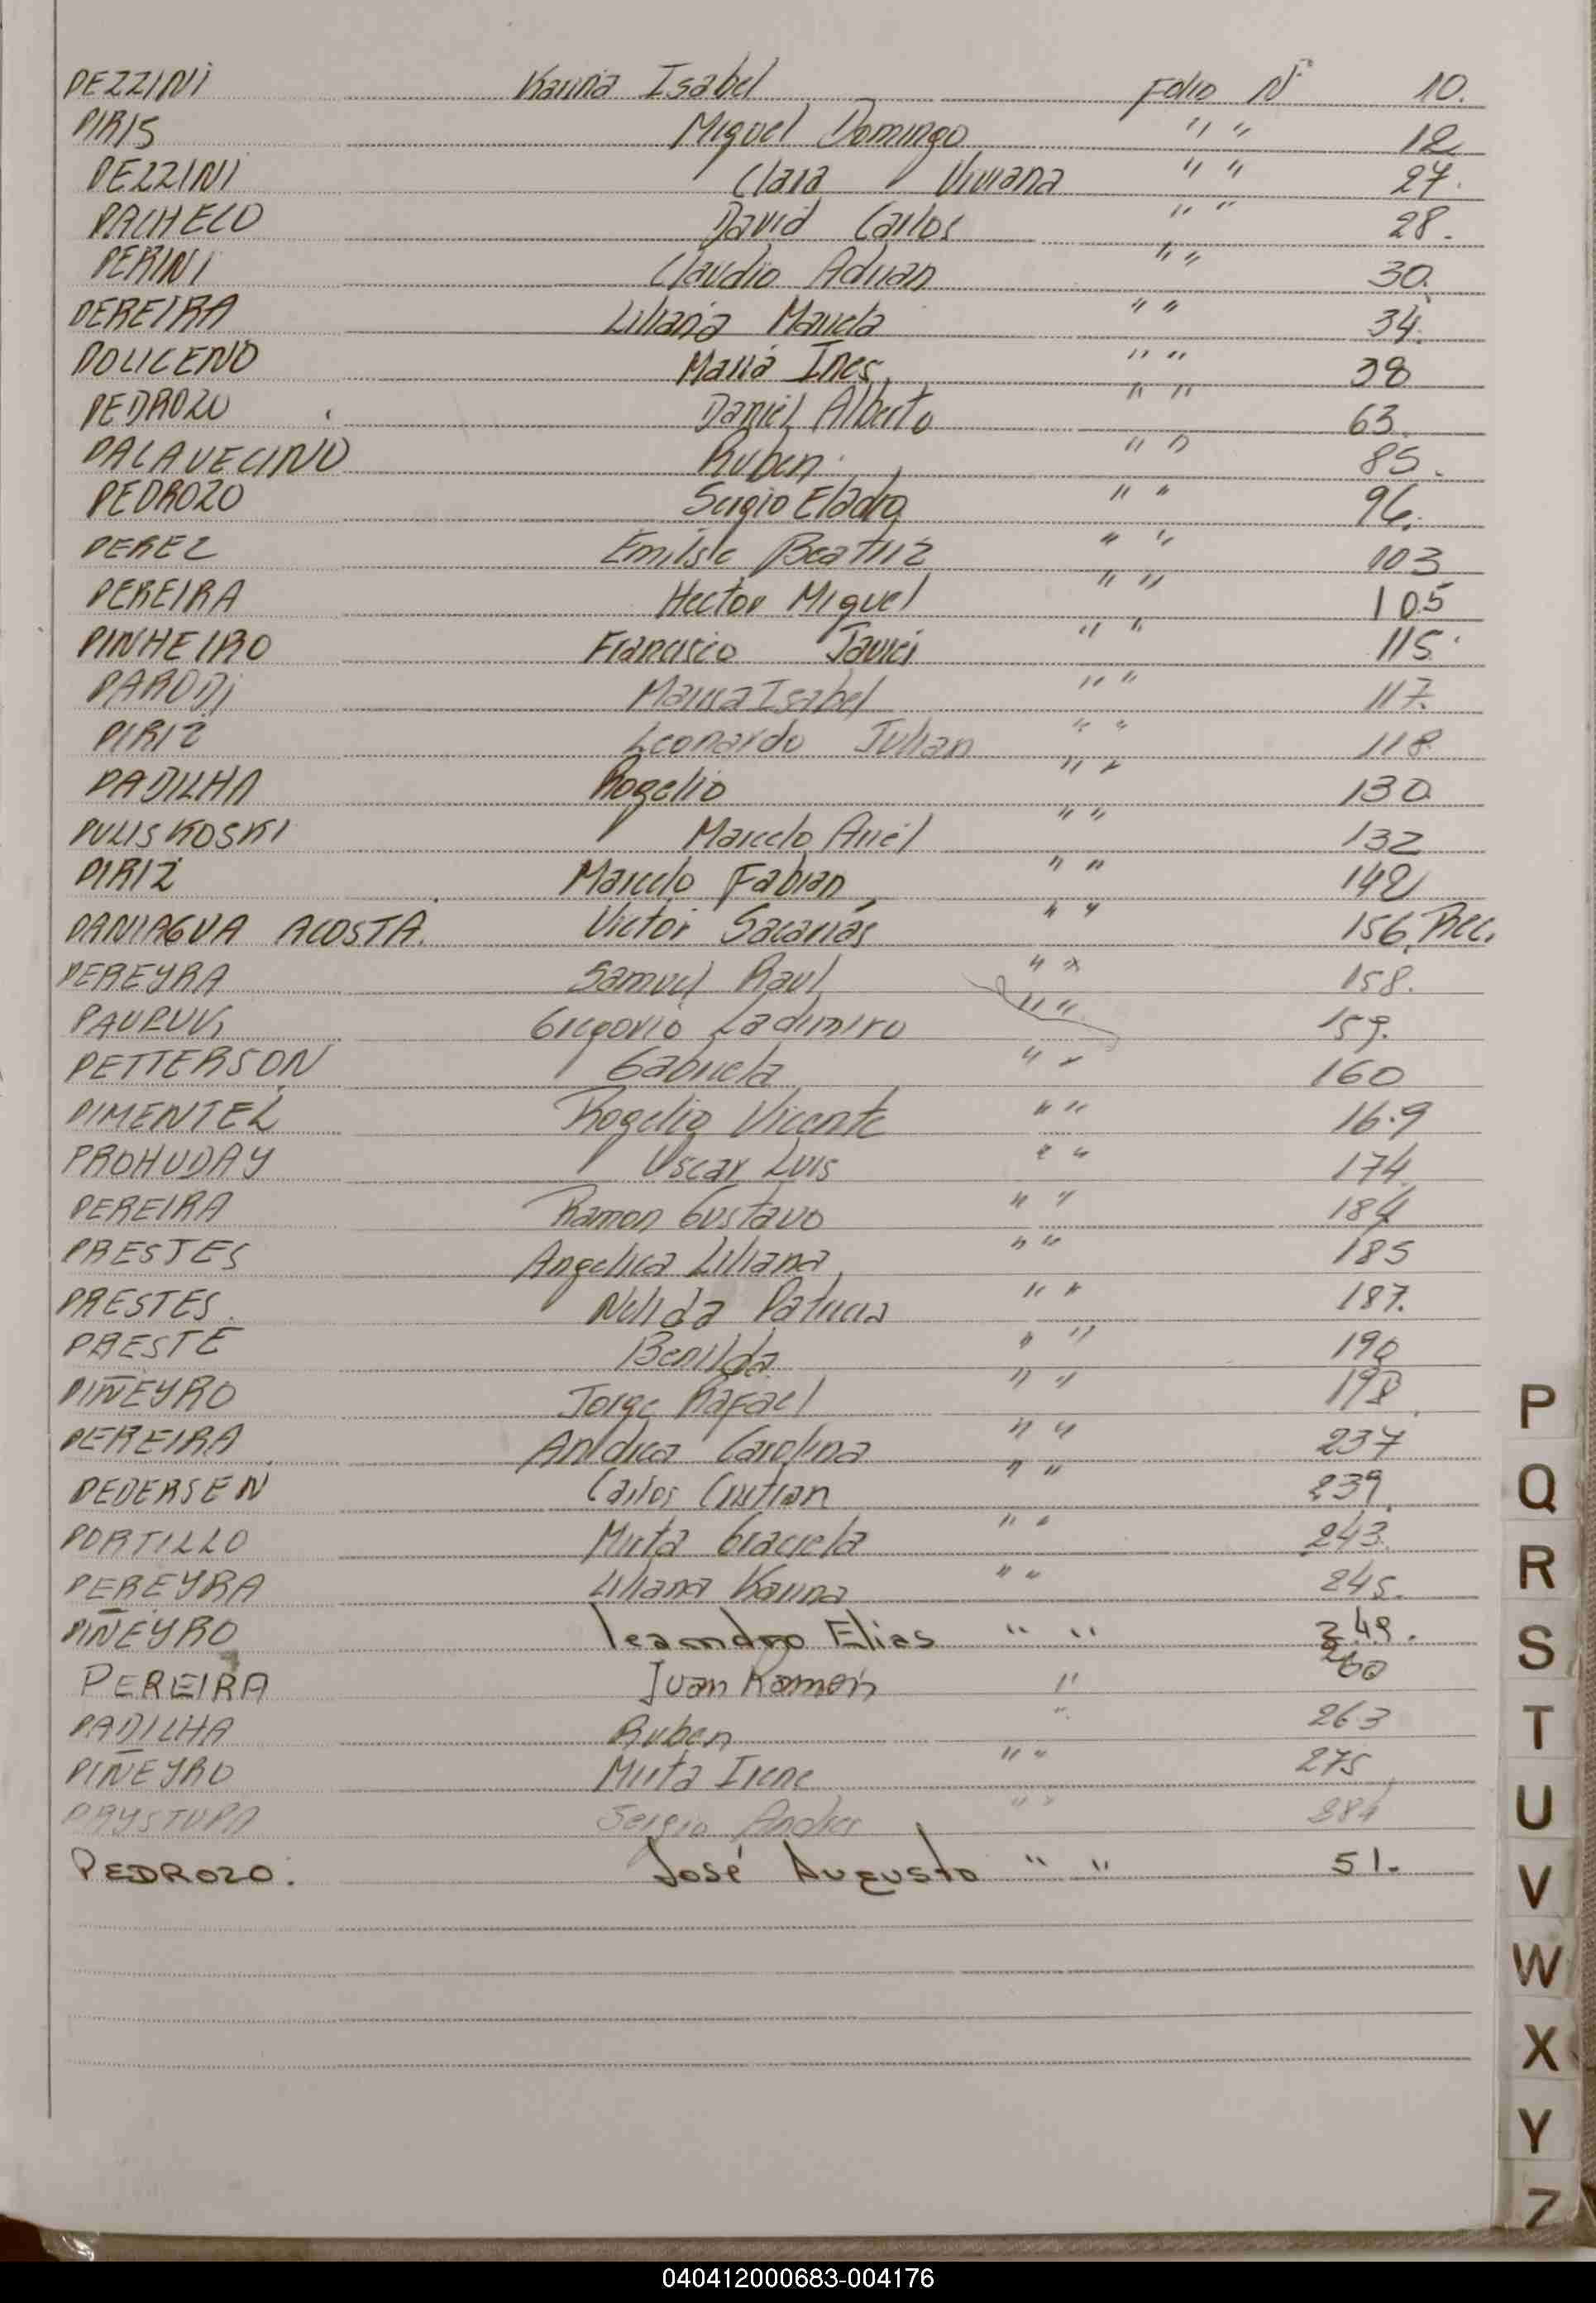 PEZZINI Karina Isabel Folio Nº 10.
PIRIS Miguel Domingo " " 12
PEZZINI Clara Viviana " " 27.
PACHECO David Carlos " " 28.
PERINI Claudio Adrian " " 30.
PEREIRA Liliana Mariela " " 34.
POLICENO Maria Ines " " 38
PEDROZO Daniel Alberto " " 63.
PALAVECINO Ruben " " 85.
PEDROZO Sergio Eladio " " 96.
PEREZ Emilse Beatriz " " 103
PEREIRA Hector Miguel " " 105
PINHEIRO Francisco Javier " " 115.
PARODI Maria Isabel " " 117.
PIRIZ Leonardo Julian " " 118
PADILHA Rogelio " " 130.
PULISKOSKI Marcelo Ariel " " 132
PIRIZ Marcelo Fabian " " 142
PANIAGUA ACOSTA. Victor Sacarias " " 156. Rec.
PEREYRA Samuel Raul " " 158.
Gregorio Ladimiro " " 159.
PETTERSON Gabriela " " 160
PIMENTEL Rogelio Vicente " " 169
PROHUDAY Oscar Luis " " 174.
PEREIRA Ramon Gustavo " " 184
PRESTES Angelica Liliana " " 185
PRESTES. Nelida Patricia " " 187.
PRESTE Benilda " " 190
PIÑEYRO Jorge Rafael " " 198
PEREIRA Andrea Carolina " " 237
PEDERSEN Carlos Cristian " " 239.
PORTILLO Mirta Graciela " " 243.
PEREYRA Liliana Karina " " 245.
PIÑEYRO leandro Elias " " 249.
PEREIRA Juan Ramón " 260
PADILHA Ruben " 263
PIÑEYRO Mirta Irene " " 275
PRYSTUPA Sergio Andres " " 284
PEDROZO. José Augusto " " 51.
P
Q
R
S
T
U
V
W
X
Y
Z
040412000683-004176